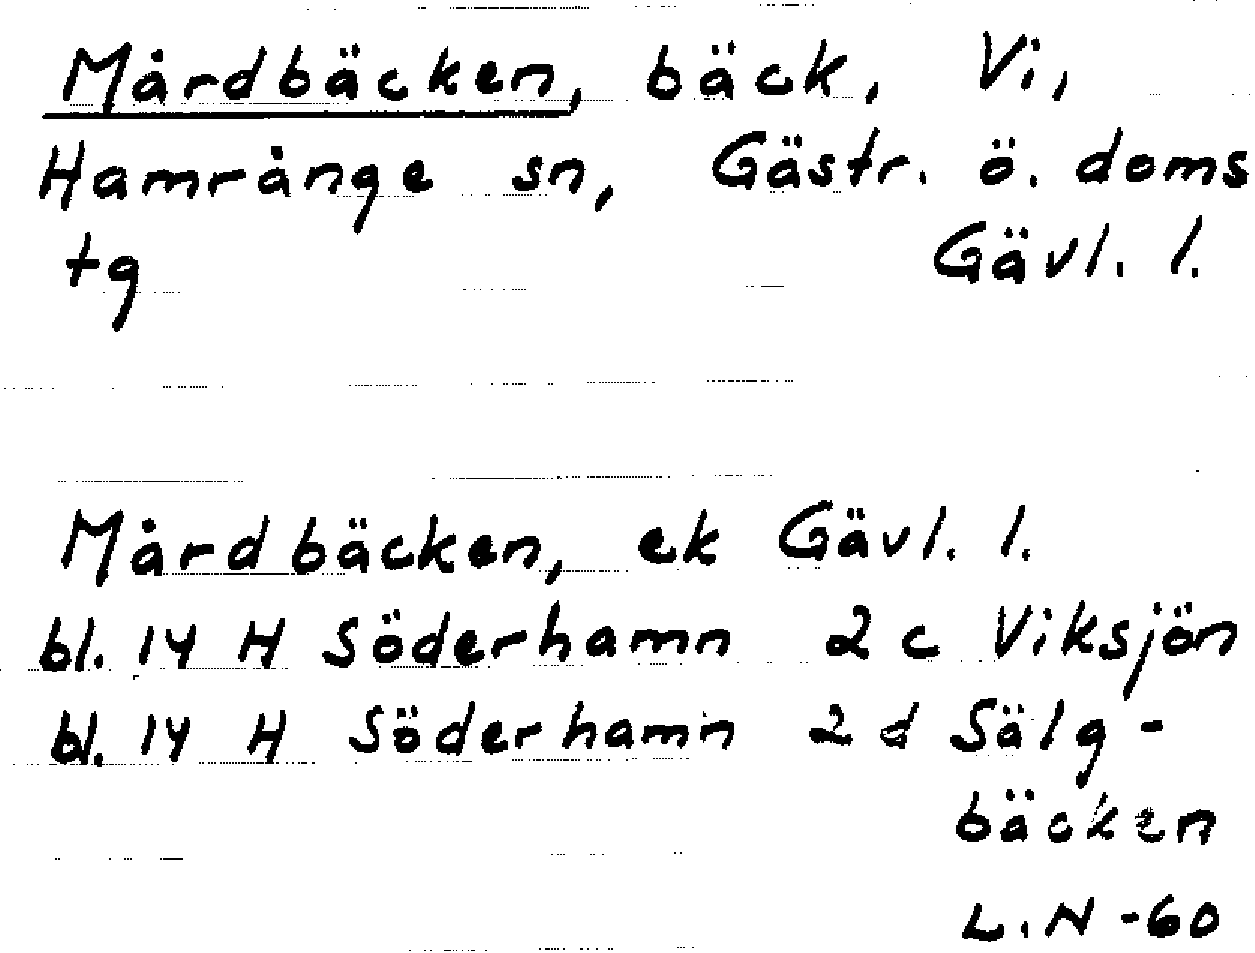 Mårdbäcken, bäck, Vi,
Hamrånge sn, Gästr. ö. doms
tg Gävl. l.
Mårdbäcken, ek Gävl. l.
bl. 14 H Söderhamn 2 c Viksjön
bl. 14 H Söderhamn 2 d Sälg-
bäcken
L.N -60